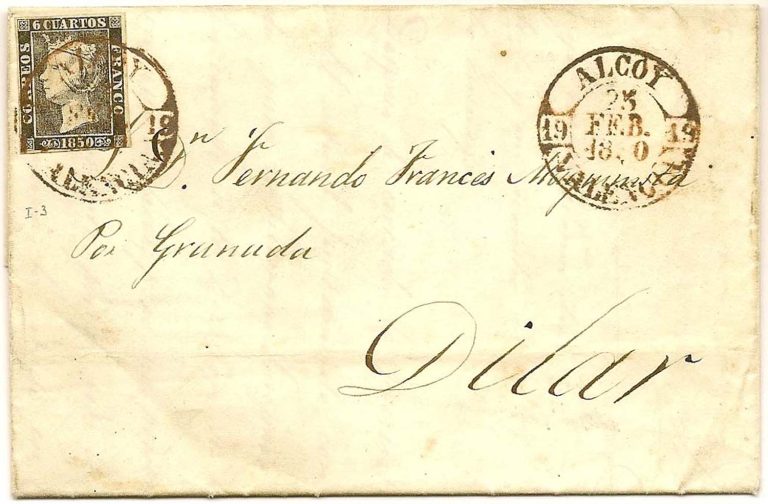 6 CUARTOS
CORREOS
FRANCO
1850
19
ALCOY
25
FEB.
19
19
VALENCIA
I-3
Dn. Fernando Francés
Por Granada
Dilar